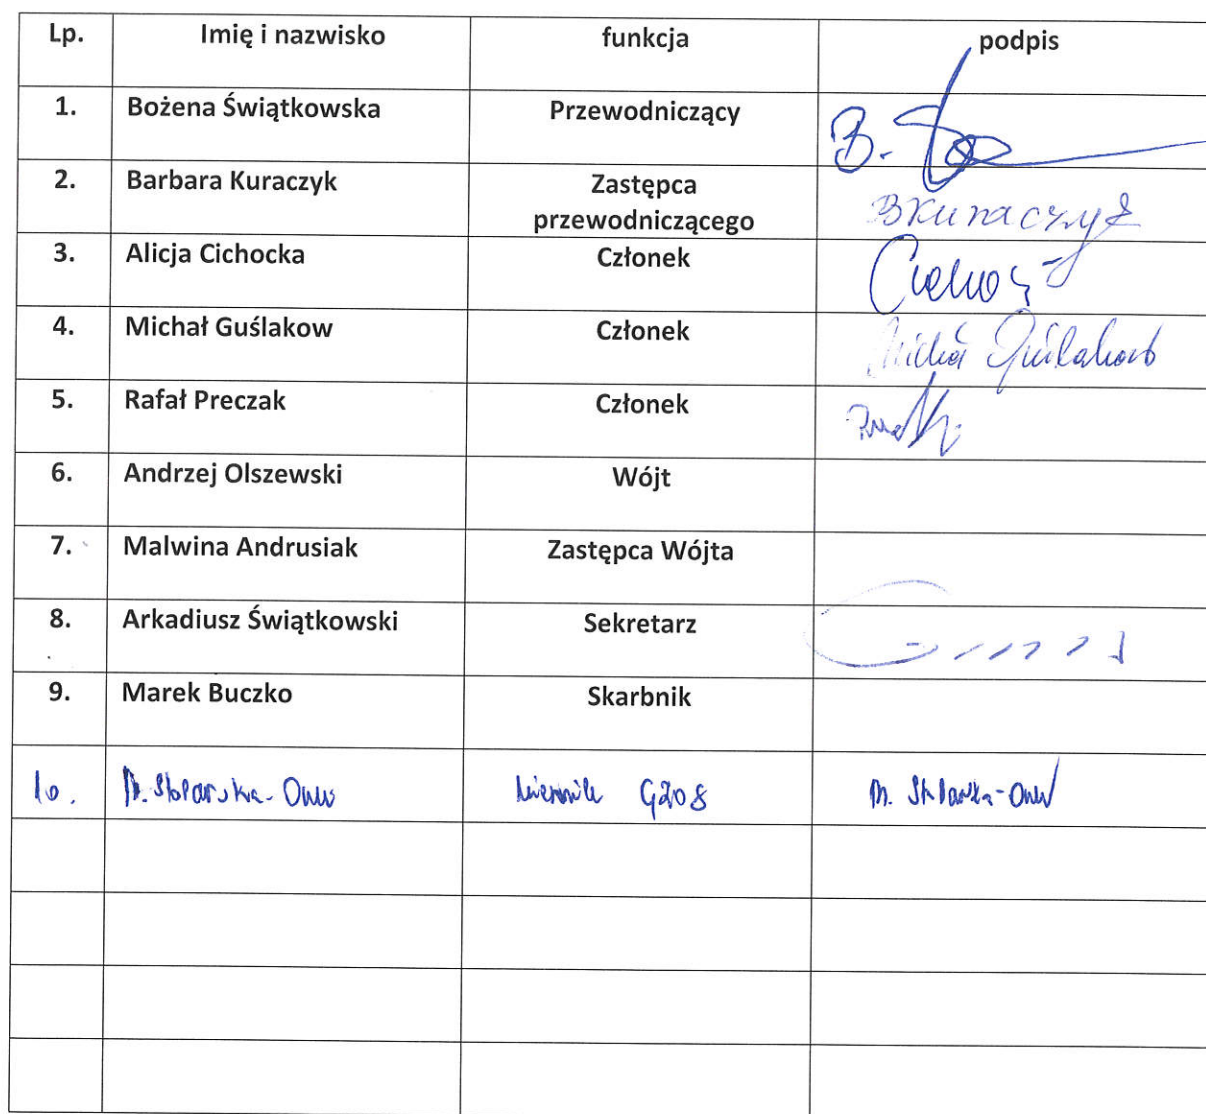 Lp. Imię i nazwisko funkcja podpis
1. Bożena Świątkowska Przewodniczący B.
2. Barbara Kuraczyk Zastępca przewodniczącego BKuraczyk
3. Alicja Cichocka Członek
4. Michał Guślakow Członek Michał Guślakow
5. Rafał Preczak Członek
6. Andrzej Olszewski Wójt
7. Malwina Andrusiak Zastępca Wójta
8. Arkadiusz Świątkowski Sekretarz
9. Marek Buczko Skarbnik
10. M. Stolarska- GZOS M. Stolarska-